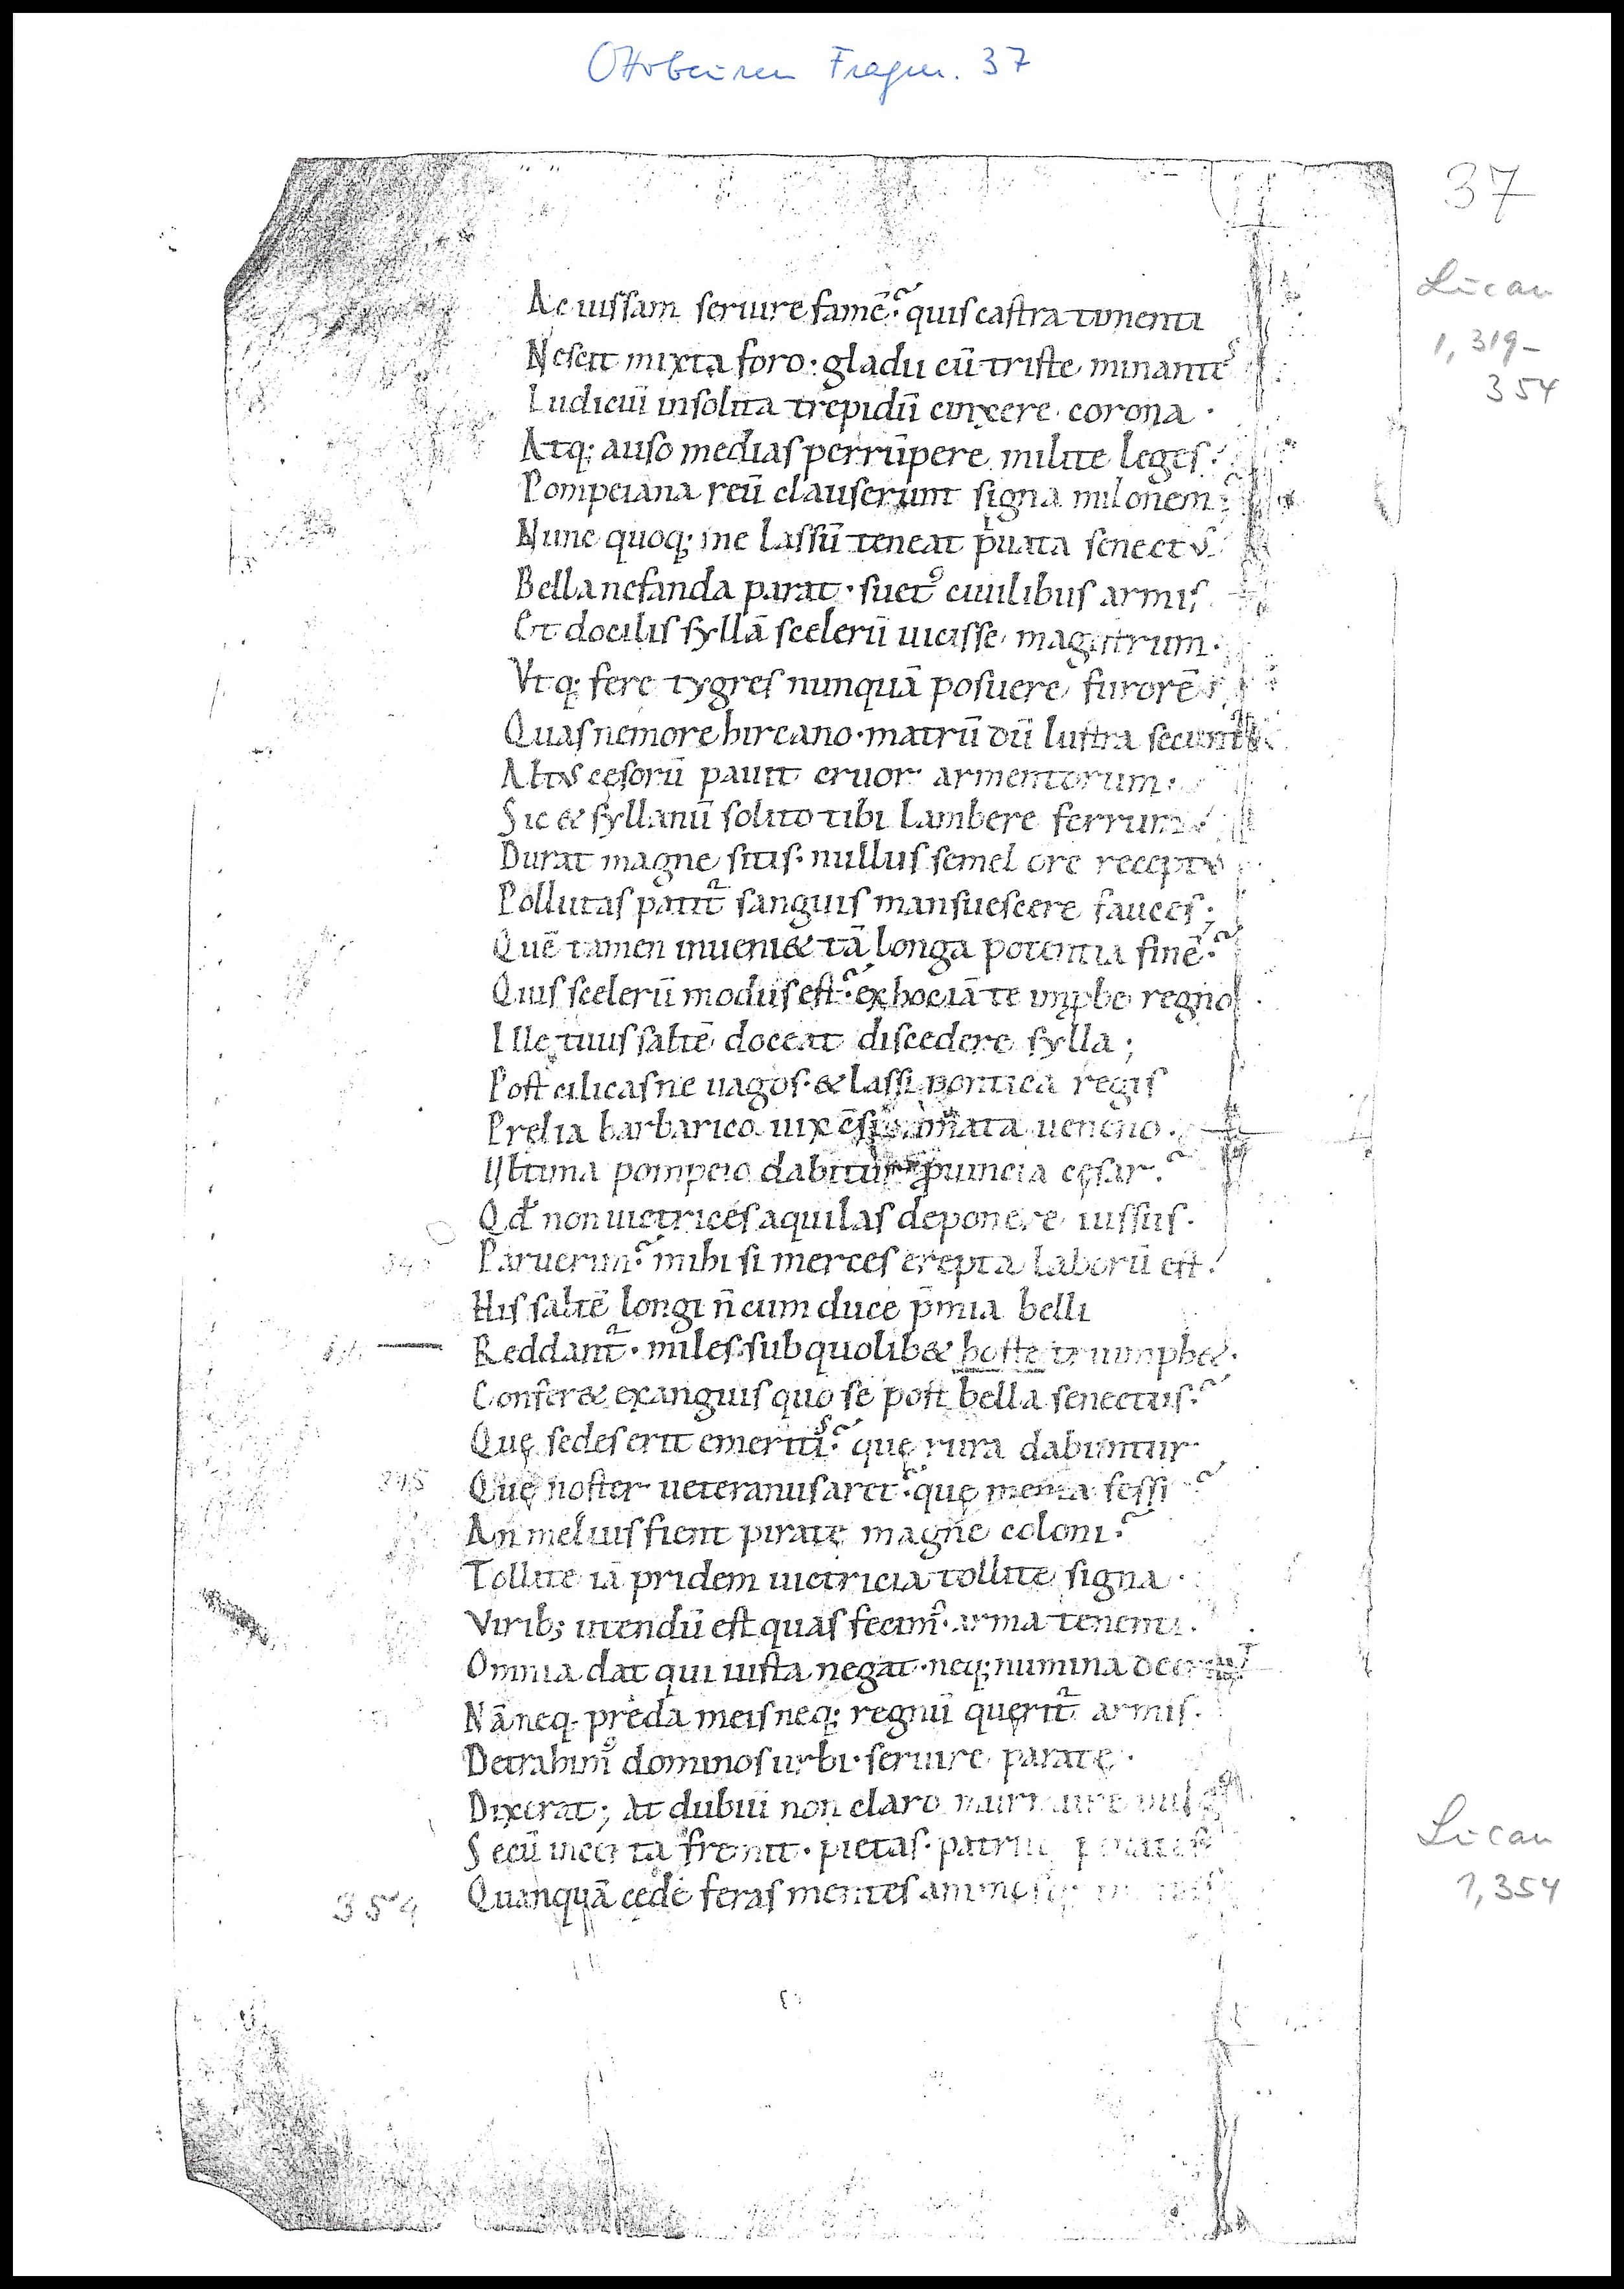 Ottobeuren Fragm. 37
37
Lucan
1, 319-
354
Ac iussam seruire famē? quis castra timenti
Nescit mixta foro· gladii cū triste minantes
Iudiciū insolita trepidū cinxere corona·
Atq; auso medias perrūpere milite leges·
Pompeiana reū clauserunt signa milonem
Nunc quoq; me lassū teneat puata senectus
Bella nefanda parat· suetꝰ ciuilibus armis
Et docilis syllā scelerū uicisse magistrum·
Vtq; fere tygres nunquā posuere furorē
Quas nemore hircano· matrū dū lustra secunt
Altus cęsorū pauit cruor armentorum·
Sic & syllanū solito tibi lambere ferrum
Durat magne sitis· nullus semel ore receptus
Pollutas patit᷑ sanguis mansuescere fauces·
Quē tamen inueni& tā longa potentia finē?
Quis scelerū modus est? ex hoc iā te impbe regno
Ille tuus saltē doceat discedere sylla;
Post cilicasne uagos· & lassi pontica regis
Prelia barbarico uix ueneno·
Vltima pompeio dabitur ꝓuincia cęsar?
Qđ non uictrices aquilas deponere iussus·
340 Paruerim? mihi si merces erepta laborū est·
His saltē longi n̄ cum duce p̄mia belli
Reddant᷑· miles sub quolib& hoste triumph&·
Confer& exanguis quo se post bella senectus?
Quę sedes erit emeritis? quę rura dabuntur
345 Quę noster ueteranus aret? quę menia fessis?
An melius fient piratę magne coloni?
Tollite iā pridem uictricia tollite signa·
Virib; utendū est quas fecimꝰ· arma tenenti·
Omnia dat qui iusta negat· neq; numina
Nā neq; preda meis neq; regnū querit᷑ armis·
Detrahimꝰ dominos urbi· seruire paratę·
Dixerat; At dubiū non claro murmure
Secū incerta fremit· pietas· patrii penates
354 Quanquā cede feras mentes
Lucan
1, 354